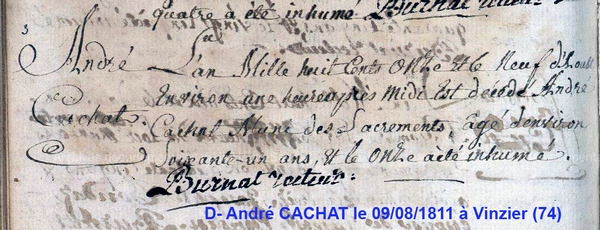 quatre a été inhumé Burnat recteur
André L'an Mille huit Cents Onze et le Neuf d'Aoust
Environ une heure après midi Est décédé André
Cachat Cachat Muni des Sacrements, âgé d'environ
Soixante un ans, et le Onze a été inhumé.
Burnat recteur.
D- André CACHAT le 09/08/1811 à Vinzier (74)